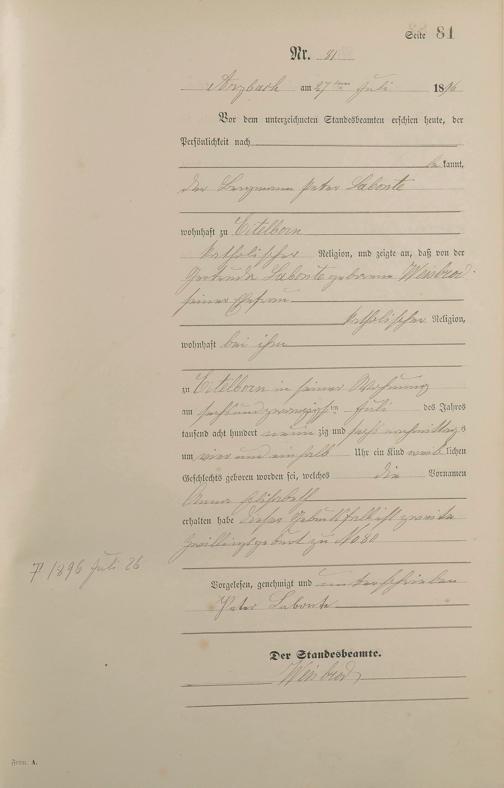 Seite 81
Nr. 81
Arzbach am 27ten Juli 1896
Vor dem unterzeichneten Standesbeamten erschien heute, der
Persönlichkeit nach
be kannt,
der Bergmann Peter Labonte
wohnhaft zu Eitelborn
katholischer Religion, und zeigte an, daß von der
Gertruda Labonte geborene Weisbrod
seiner Ehefrau
katholischer Religion,
wohnhaft bei ihm
zu Eitelborn in seiner Wohnung
am sechsundzwanzigsten Juli des Jahres
tausend acht hundert neunzig und sechs nachmittags
um vier und einhalb Uhr ein Kind weiblichen
Geschlechts geboren worden sei, welches die Vornamen
Anna Elisabeth
erhalten habe dieser Geburtsfall ist zweite
Zwillingsgeburt zu No 80
1896 Juli 26
Vorgelesen, genehmigt und unterschrieben
Peter Labonte
Der Standesbeamte.
Weisbrod
Form. A.